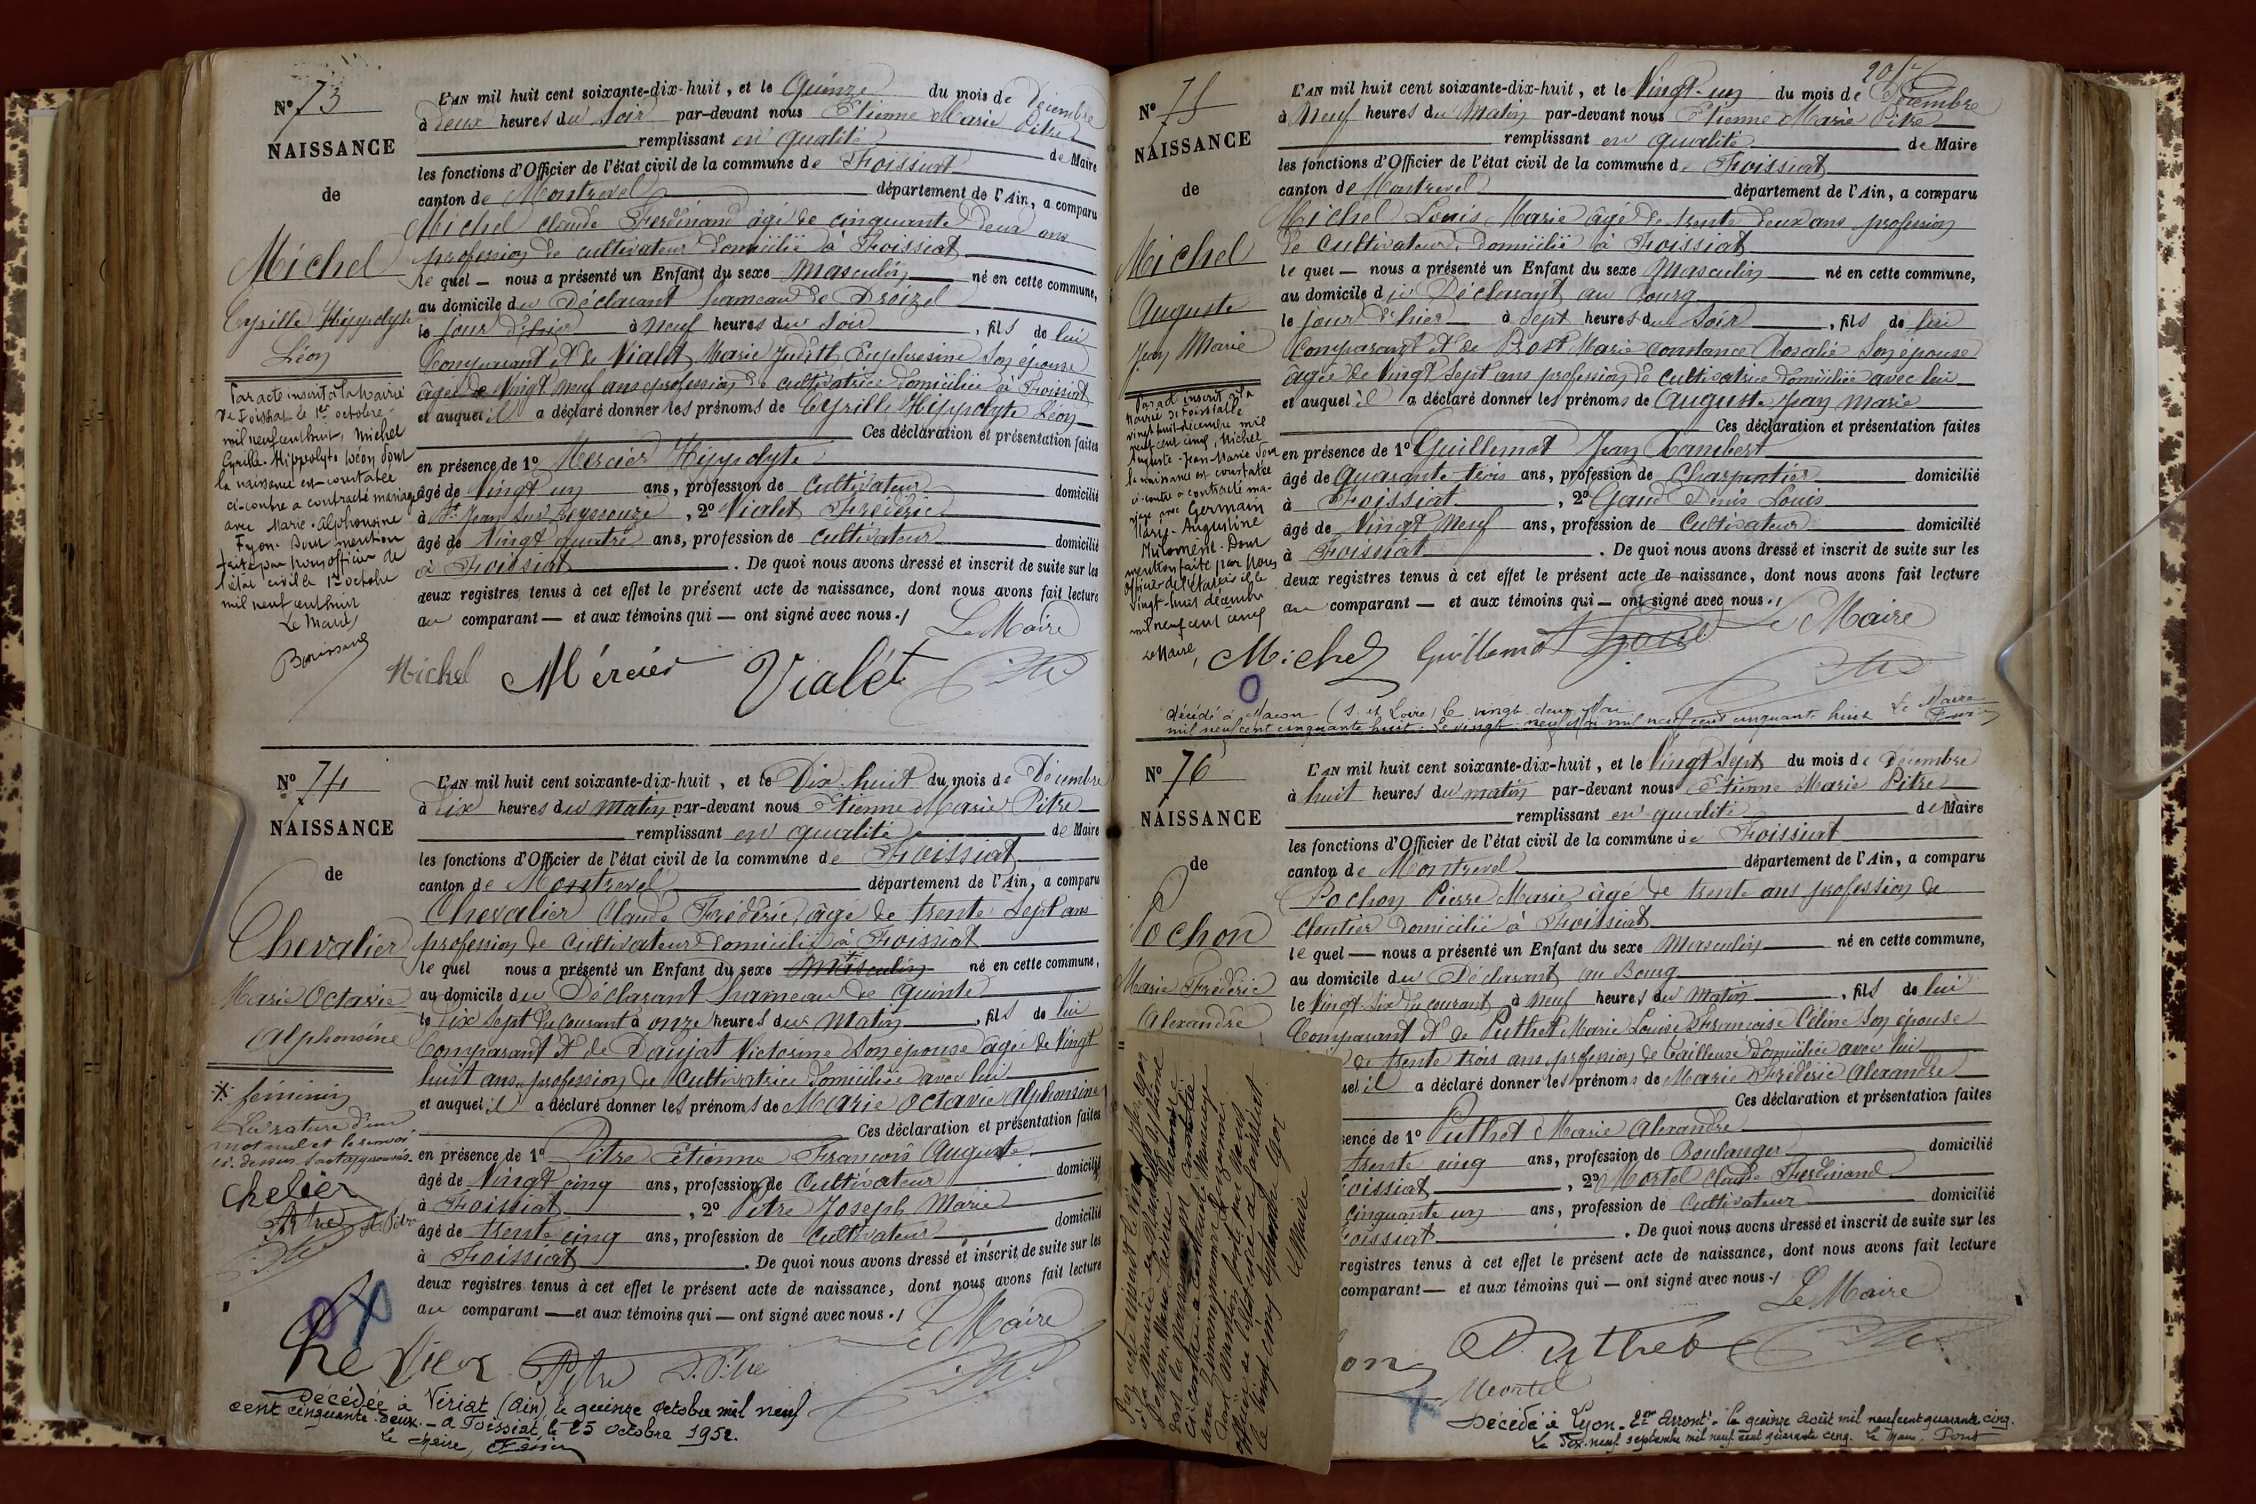 N° 73
NAISSANCE
de
Michel
Cyrille Hippolyte
Léon
Par acte inscrit à la Mairie
de Foissiat le 1er octobre
mil neuf cent huit, Michel
Cyrille Hippolyte Léon dont
la naissance est constatée
ci-contre a contracté mariage
avec Marie Alphonsine
Fyon. Dont mention
faite par nous officier de
l'état civil le 1er octobre
mil neuf cent huit
Le Maire
L'AN mil huit cent soixante-dix-huit, et le Quinze du mois de Décembre
à deux heures du Soir par-devant nous Etienne Marie Pitre
remplissant en qualité de Maire
les fonctions d'Officier de l'état civil de la commune de Foissiat
canton de Montrevel département de l'Ain, a comparu
Michel Claude Ferdinand âgé de cinquante deux ans
profession de cultivateur domicilié à Foissiat
le quel — nous a présenté un Enfant du sexe Masculin né en cette commune,
au domicile du Déclarant hameau de Droizel
le jour d'hier à Neuf heures du Soir, fils de lui
Comparant et de Vialet Marie Judith Euphrosine son épouse
âgée de Vingt neuf ans profession de cultivatrice domiciliée à Foissiat
et auquel il a déclaré donner les prénoms de Cyrille Hippolyte Léon
Ces déclaration et présentation faites
en présence de 1° Mercier Hippolyte
âgé de Vingt un ans, profession de Cultivateur domicilié
à St Jean sur Reyssouze, 2° Vialet Frédéric
âgé de Vingt quatre ans, profession de cultivateur domicilié
à Foissiat. De quoi nous avons dressé et inscrit de suite sur les
deux registres tenus à cet effet le présent acte de naissance, dont nous avons fait lecture
au comparant — et aux témoins qui — ont signé avec nous./
Le Maire
Michel Mércier Vialét
N° 74
NAISSANCE
de
Chevalier
Marie Octavie
Alphonsine
* féminin
La rature d'un
mot nul et le renvoi
ci-dessus sont approuvés
L'AN mil huit cent soixante-dix-huit, et le Dix huit du mois de Décembre
à Dix heures du matin par-devant nous Etienne Marie Pitre
remplissant en qualité de Maire
les fonctions d'Officier de l'état civil de la commune de Foissiat
canton de Montrevel département de l'Ain, a comparu
Chevalier Claude Frédéric âgé de trente sept ans
profession de Cultivateur domicilié à Foissiat
le quel nous a présenté un Enfant du sexe Masculin * né en cette commune,
au domicile du Déclarant hameau de Quinte
le Dix sept du courant à onze heures du Matin, fils de lui
Comparant et de Daujat Victorine son épouse âgée de Vingt
huit ans profession de Cultivatrice domiciliée avec lui
et auquel il a déclaré donner les prénoms de Marie Octavie Alphonsine
Ces déclaration et présentation faites
en présence de 1° Pitre Etienne François Auguste
âgé de Vingt cinq ans, profession de Cultivateur domicilié
à Foissiat, 2° Pitre Joseph Marie
âgé de trente cinq ans, profession de Cultivateur domicilié
à Foissiat. De quoi nous avons dressé et inscrit de suite sur les
deux registres tenus à cet effet le présent acte de naissance, dont nous avons fait lecture
au comparant — et aux témoins qui — ont signé avec nous./
Le Maire
Décédée à Viriat (Ain) le quinze octobre mil neuf
cent cinquante deux. — a Foissiat, le 25 octobre 1952.
Le Maire,
N° 75
NAISSANCE
de
Michel
Auguste
Jean Marie
Par acte inscrit à la
Mairie de Foissiat le
vingt huit décembre mil
neuf cent cinq, Michel
Auguste Jean Marie dont
la naissance est constatée
ci-contre a contracté ma-
riage avec Germain
Mary Augustine
Philomène. Dont
mention faite par nous
officier de l'état civil le
vingt-huit décembre
mil neuf cent cinq
Le Maire,
L'AN mil huit cent soixante-dix-huit, et le Vingt-un du mois de Décembre
à Neuf heures du Matin par-devant nous Etienne Marie Pitre
remplissant en qualité de Maire
les fonctions d'Officier de l'état civil de la commune de Foissiat
canton de Montrevel département de l'Ain, a comparu
Michel Louis Marie âgé de trente deux ans profession
de Cultivateur domicilié à Foissiat
le quel — nous a présenté un Enfant du sexe Masculin né en cette commune,
au domicile du Déclarant au Bourg
le jour d'hier à sept heures du Soir, fils de lui
Comparant et de Prost Marie Constance Rosalie son épouse
âgée de Vingt sept ans profession de cultivatrice domiciliée avec lui
et auquel il a déclaré donner les prénoms de Auguste Jean Marie
Ces déclaration et présentation faites
en présence de 1° Guillemot Jean Rambert
âgé de Quarante trois ans, profession de Charpentier domicilié
à Foissiat, 2° Gaud Denis Louis
âgé de Vingt Neuf ans, profession de Cultivateur domicilié
à Foissiat. De quoi nous avons dressé et inscrit de suite sur les
deux registres tenus à cet effet le présent acte de naissance, dont nous avons fait lecture
au comparant — et aux témoins qui — ont signé avec nous./
Le Maire
Michel Guillemot
Décédé à Macon (S. et Loire) le vingt deux Mai
mil neuf cent cinquante huit. Le vingt neuf Mai mil neuf cent cinquante huit Le Maire
N° 76
NAISSANCE
de
Pochon
Marie Frédéric
Alexandre
L'AN mil huit cent soixante-dix-huit, et le Vingt sept du mois de Décembre
à huit heures du matin par-devant nous Etienne Marie Pitre
remplissant en qualité de Maire
les fonctions d'Officier de l'état civil de la commune de Foissiat
canton de Montrevel département de l'Ain, a comparu
Pochon Pierre Marie âgé de trente ans profession de
cloutier domicilié à Foissiat
le quel — nous a présenté un Enfant du sexe Masculin né en cette commune,
au domicile du Déclarant au Bourg
le Vingt-six du courant à Neuf heures du Matin, fils de lui
Comparant et de Puthet Marie Louise Françoise Céline son épouse
de trente trois ans profession de Tailleuse domiciliée avec lui
uel il a déclaré donner les prénoms de Marie Frédéric Alexandre
Ces déclaration et présentation faites
sence de 1° Puthet Marie Alexandre
trente cinq ans, profession de Boulanger domicilié
oissiat, 2° Mortel Claude Ferdinand
cinquante un ans, profession de Cultivateur domicilié
oissiat. De quoi nous avons dressé et inscrit de suite sur les
registres tenus à cet effet le présent acte de naissance, dont nous avons fait lecture
comparant — et aux témoins qui — ont signé avec nous./
Le Maire
on Puthet
Mortel
Décédé à Lyon-2me Arront. le quinze Août mil neuf cent quarante cinq.
Le dix-neuf septembre mil neuf cent quarante cinq. Le Maire,